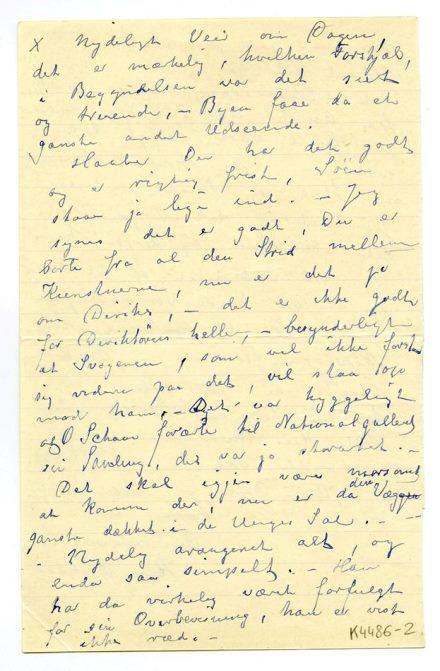 X Nydeligt Veir om Dagen,
det er mærkelig, hvilken Forskjæl,
i Begyndelsen var det surt
og trivende, – Byen faae da et
ganske andet Udseende.
Haaber Du har det godt
og er rigtig frisk,
staae jo lige ind. – Jeg
synes det er godt, Du er
borte fra al den Strid mellem
Kunstnerne, nu er det jo
om Diriks, – det er ikke godt
for Direktören heller, – besynderligt
at som vil ikke
sig videre paa det, vil staa op
mod ham, – Det var hyggeligt
og O Schou forærte til Nationalgalleriet
sin Samling, det var jo storartet. –
Det skal igjen være morsomt
at komme der, nu er da den Væggen
ganske dækket i de Unges Sal. – –
– Nydelig arangeret alt, og
enda saa simpelt. – Han
har da virkelig været forfulgt
for sin Overbevisning, han er vist
ikke ræd. –
K4486-2